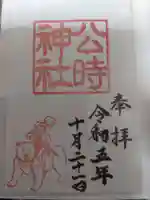 奉拝
公時神社
令和五年
十月二十一日